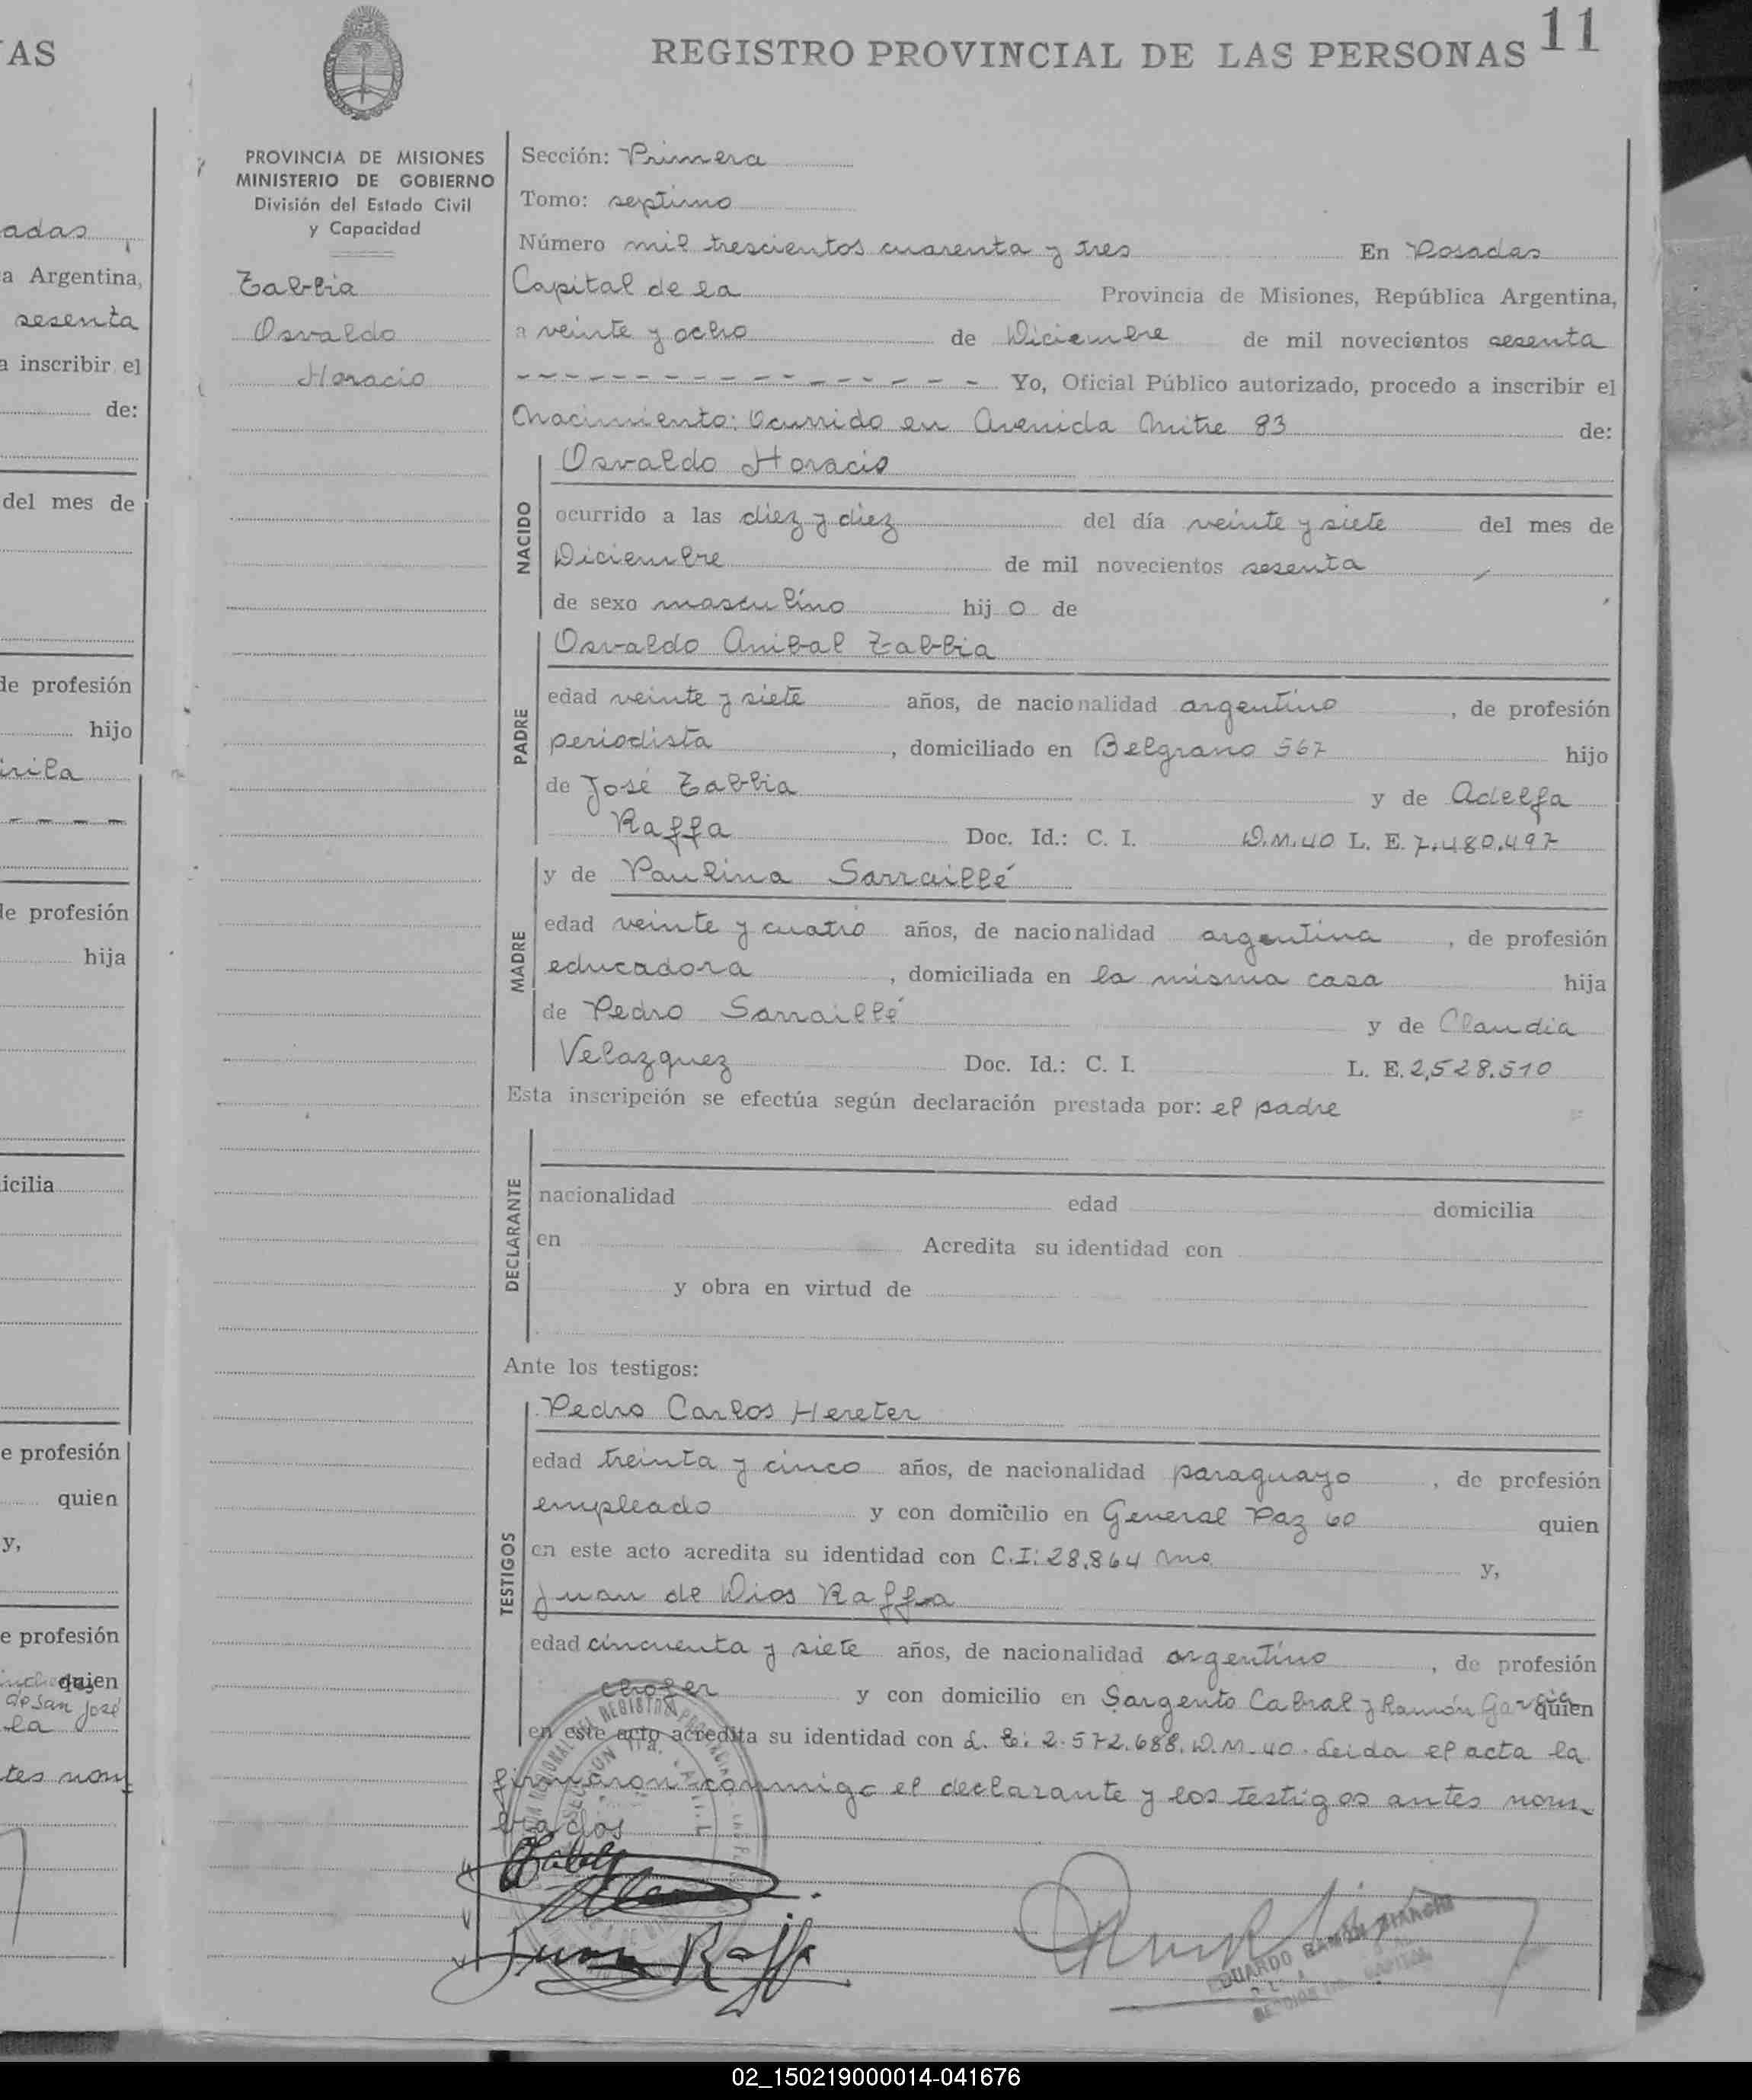 AS
adas
a Argentina,
sesenta
a inscribir el
de:
del mes de
de profesión
hijo
de profesión
hija
icilia
e profesión
quien
y,
e profesión
quien
de San José
la
tes nom
11
REGISTRO PROVINCIAL DE LAS PERSONAS
PROVINCIA DE MISIONES
MINISTERIO DE GOBIERNO
División del Estado Civil
y Capacidad
Zabbia
Osvaldo
Horacio
Sección: Primera
Tomo: septimo
Número mil trescientos cuarenta y tres En Posadas
Capital de la Provincia de Misiones, República Argentina,
a veinte y ocho de Diciembre de mil novecientos sesenta
Yo, Oficial Público autorizado, procedo a inscribir el
Nacimiento: Ocurrido en Avenida Mitre 83 de:
NACIDO
Osvaldo Horacio
ocurrido a las diez y diez del día veinte y siete del mes de
Diciembre de mil novecientos sesenta
de sexo masculino hij o de
PADRE
Osvaldo Anibal Zabbia
edad veinte y siete años, de nacionalidad argentino, de profesión
periodista, domiciliado en Belgrano 567 hijo
de José Zabbia y de Adelfa
Raffa Doc. Id.: C. I. D.M.40 L. E. 7.480.497
MADRE
y de Paulina Sarraillé
edad veinte y cuatro años, de nacionalidad argentina, de profesión
educadora, domiciliada en la misma casa hija
de Pedro Sarraillé y de Claudia
Velazquez Doc. Id.: C. I. L. E. 2,528.510
Esta inscripción se efectúa según declaración prestada por: el padre
DECLARANTE
nacionalidad edad domicilia
en Acredita su identidad con
y obra en virtud de
Ante los testigos:
TESTIGOS
Pedro Carlos Hereter
edad treinta y cinco años, de nacionalidad paraguayo, de profesión
empleado y con domicilio en General Paz 60 quien
en este acto acredita su identidad con C.I: 28.864 Mnes
y,
Juan de Dios Raffa
edad cincuenta y siete años, de nacionalidad argentino, de profesión
chofer y con domicilio en Sargento Cabral y Ramón García quien
en este acto acredita su identidad con L. E: 2.572.688. D.M. 40. Leida el acta la
firmaron conmigo el declarante y los testigos antes nom
brados
Juan Raffa
EDUARDO RAMÓN BIANCHI
SECCION 1ra. CAPITAL
02_150219000014-041676